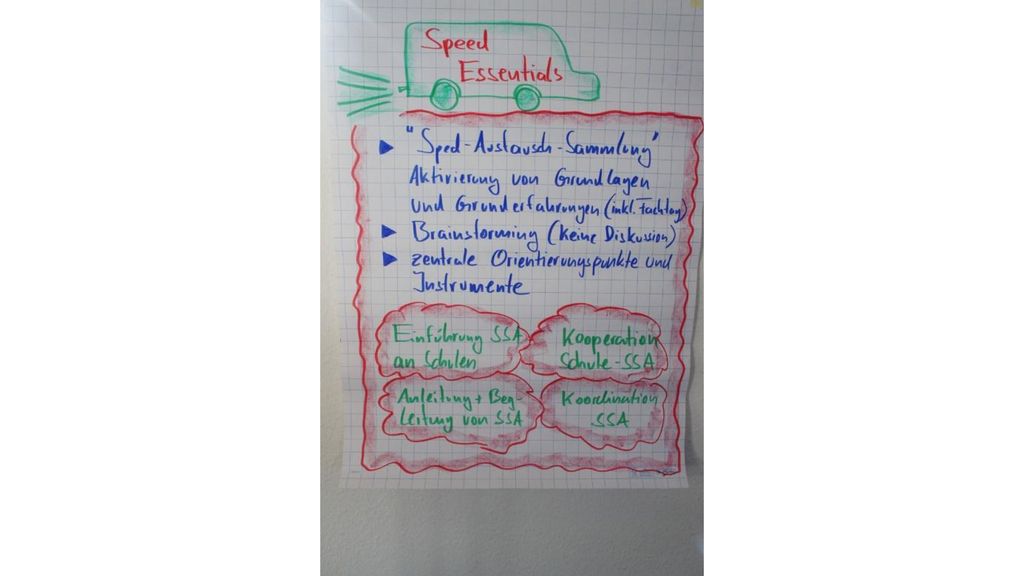 Speed
Essentials
"Sped-Austausch-Sammlung"
Aktivierung von Grundlagen
und Grunderfahrungen (inkl. Fachtag)
Brainstorming (keine Diskussion)
zentrale Orientierungspunkte und
Instrumente
Einführung SSA
an Schulen
Kooperation
Schule-SSA
Anleitung + Beg-
leitung von SSA
Koordination
SSA